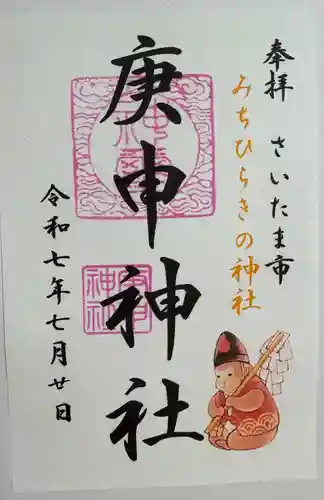 奉拝 さいたま市
みちひらきの神社
庚申神社
令和七年七月廿日